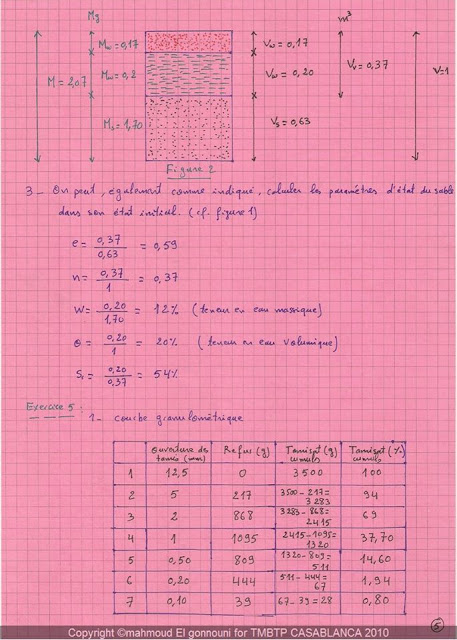 Mg m³
Mw = 0,17 Vw = 0,17
M = 2,07 Mw = 0,2 Vw = 0,20 Vv = 0,37 V=1
Ms = 1,70 Vs = 0,63
Figure 2
3 - On peut, également comme indiqué, calculer les paramètres d'état du sable
dans son état initial. (cf. figure 1)
e = 0,37 / 0,63 = 0,59
n = 0,37 / 1 = 0,37
W = 0,20 / 1,70 = 12% (teneur en eau massique)
θ = 0,20 / 1 = 20% (teneur en eau volumique)
Sr = 0,20 / 0,37 = 54%
Exercice 5 : 1 - courbe granulométrique
Ouverture des tamis (mm) Refus (g) Tamisat (g) cumulé Tamisat (%) cumulé
1 12,5 0 3500 100
2 5 217 3500 - 217 = 3283 94
3 2 868 3283 - 868 = 2415 69
4 1 1095 2415 - 1095 = 1320 37,70
5 0,50 809 1320 - 809 = 511 14,60
6 0,20 444 511 - 444 = 67 1,94
7 0,10 39 67 - 39 = 28 0,80
5
Copyright ©mahmoud El gonnouni for TMBTP CASABLANCA 2010